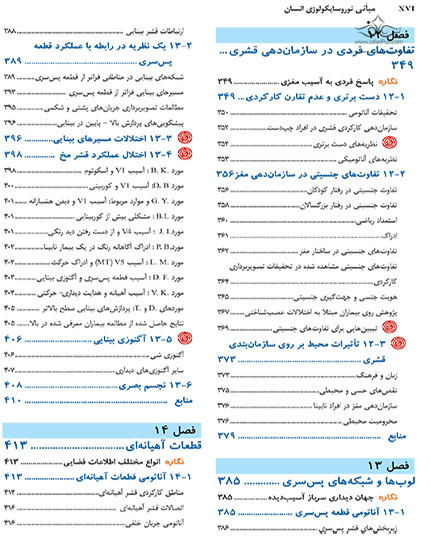 XVI
مبانی نوروسایکولوژی انسان
فصل ۱۲
تفاوت‌های فردی در سازمان‌دهی قشری ...
۳۴۹
نگاره پاسخ فردی به آسیب مغزی ........ ۳۴۹
۱۲-۱ دست برتری و عدم تقارن کارکردی .. ۳۴۹
تحقیقات آناتومی ........ ۳۵۰
سازمان‌دهی کارکردی قشری در افراد چپ‌دست ........ ۳۵۲
نظریه‌های دست برتری ........ ۳۵۲
نظریه‌های آناتومیکی ........ ۳۵۳
۱۲-۲ تفاوت‌های جنسیتی در سازمان‌دهی مغز ۳۵۶
تفاوت جنسیتی در رفتار کودکان ........ ۳۵۶
تفاوت جنسیتی در رفتار بزرگسالان ........ ۳۵۸
استعداد ریاضی ........ ۳۶۰
ادراک ........ ۳۶۱
تفاوت‌های جنسیتی در ساختار مغز ........ ۳۶۲
تفاوت‌های جنسیتی مشاهده شده در تحقیقات تصویربرداری
کارکردی ........ ۳۶۴
هویت جنسی و جهت‌گیری جنسیتی ........ ۳۶۵
پژوهش روی بیماران مبتلا به اختلالات عصب‌شناختی ........ ۳۶۷
تبیین‌هایی برای تفاوت‌های جنسیتی ........ ۳۶۹
۱۲-۳ تأثیرات محیط بر روی سازمان‌بندی
قشری ........ ۳۷۳
زبان و فرهنگ ........ ۳۷۳
نقص‌های حسی و محیطی ........ ۳۷۵
سازمان‌دهی مغز در افراد نابینا ........ ۳۷۶
محرومیت محیطی ........ ۳۷۶
منابع ........ ۳۷۹
فصل ۱۳
لوب‌ها و شبکه‌های پس‌سری ........ ۳۸۵
نگاره جهان دیداری سرباز آسیب‌دیده ........ ۳۸۵
۱۳-۱ آناتومی قطعه پس‌سری ........ ۳۸۵
زیربخش‌های قشر پس‌سری ........ ۳۸۶
ارتباطات قشر بینایی ........ ۳۸۸
۱۳-۲ یک نظریه در رابطه با عملکرد قطعه
پس‌سری ........ ۳۸۹
شبکه‌های بینایی در مناطقی فراتر از قطعه پس‌سری ........ ۳۸۹
مسیرهای بینایی فراتر از قطعه پس‌سری ........ ۳۹۳
مطالعات تصویربرداری جریان‌های پشتی و شکمی ........ ۳۹۵
پیشگویی‌های پردازش بالا – پایین در بینایی ........ ۳۹۶
۱۳-۳ اختلالات مسیرهای بینایی ........ ۳۹۶
۱۳-۴ اختلال عملکرد قشر مخ ........ ۳۹۸
مورد B.K.: آسیب V1 و اسکوتوم ........ ۳۹۸
مورد D.B: آسیب V1 و کوربینی ........ ۴۰۰
مورد G.Y. و موارد مربوط: آسیب V1 و دیدن هشیارانه ........ ۴۰۱
مورد B.I.: مشکلی بیش از کوربینایی ........ ۴۰۱
مورد J.I.: آسیب V4 و از دست رفتن دید رنگی ........ ۴۰۱
مورد P.B.: ادراک آگاهانه رنگ در یک بیمار نابینا ........ ۴۰۲
مورد L.M.: آسیب V5 (MT) و ادراک حرکت ........ ۴۰۲
مورد D.F.: آسیب قطعه پس‌سری و آگنوزی بینایی ........ ۴۰۳
مورد V.K.: آسیب آهیانه و هدایت دیداری- حرکتی ........ ۴۰۴
موردهای D. و T.: پردازش‌های بینایی سطح بالاتر ........ ۴۰۵
نتایج حاصل شده از مطالعه بیماران معرفی شده در بالا ........ ۴۰۵
۱۳-۵ آگنوزی بینایی ........ ۴۰۶
آگنوزی شی ........ ۴۰۶
سایر آگنوزی‌های دیداری ........ ۴۰۷
۱۳-۶ تجسم بصری ........ ۴۰۸
منابع ........ ۴۱۰
فصل ۱۴
قطعات آهیانه‌ای ........ ۴۱۳
نگاره انواع مختلف اطلاعات فضایی ........ ۴۱۳
۱۴-۱ آناتومی قطعات آهیانه‌ای ........ ۴۱۳
مناطق کارکردی قشر آهیانه‌ای ........ ۴۱۴
اتصالات قشر آهیانه‌ای ........ ۴۱۶
آناتومی جریان خلفی ........ ۴۱۶